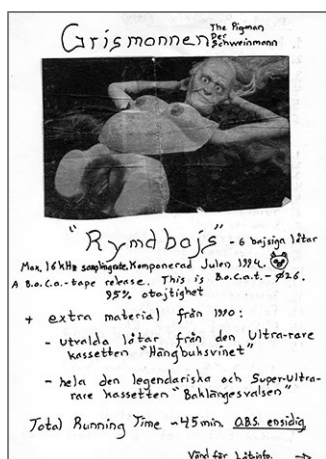 Grismannen The Pigman
Der
Schweinmann
"Rymdbajs" - 6 bajsiga låtar
Max. 16kHz samplingrate. Komponerad Julen 1994.
A B.o.C.a.-tape release. This is B.o.C.a.t.-Ø26.
95% otajtighet
+ extra material från 1990:
- utvalda låtar från den Ultra-rare
kassetten "Hängbuksvinet"
- hela den legendariska och Super-Ultra-
rare kassetten "Baklängesvalsen"
Total Running Time ~45 min. O.B.S. ensidig
Vänd för låtinfo. →